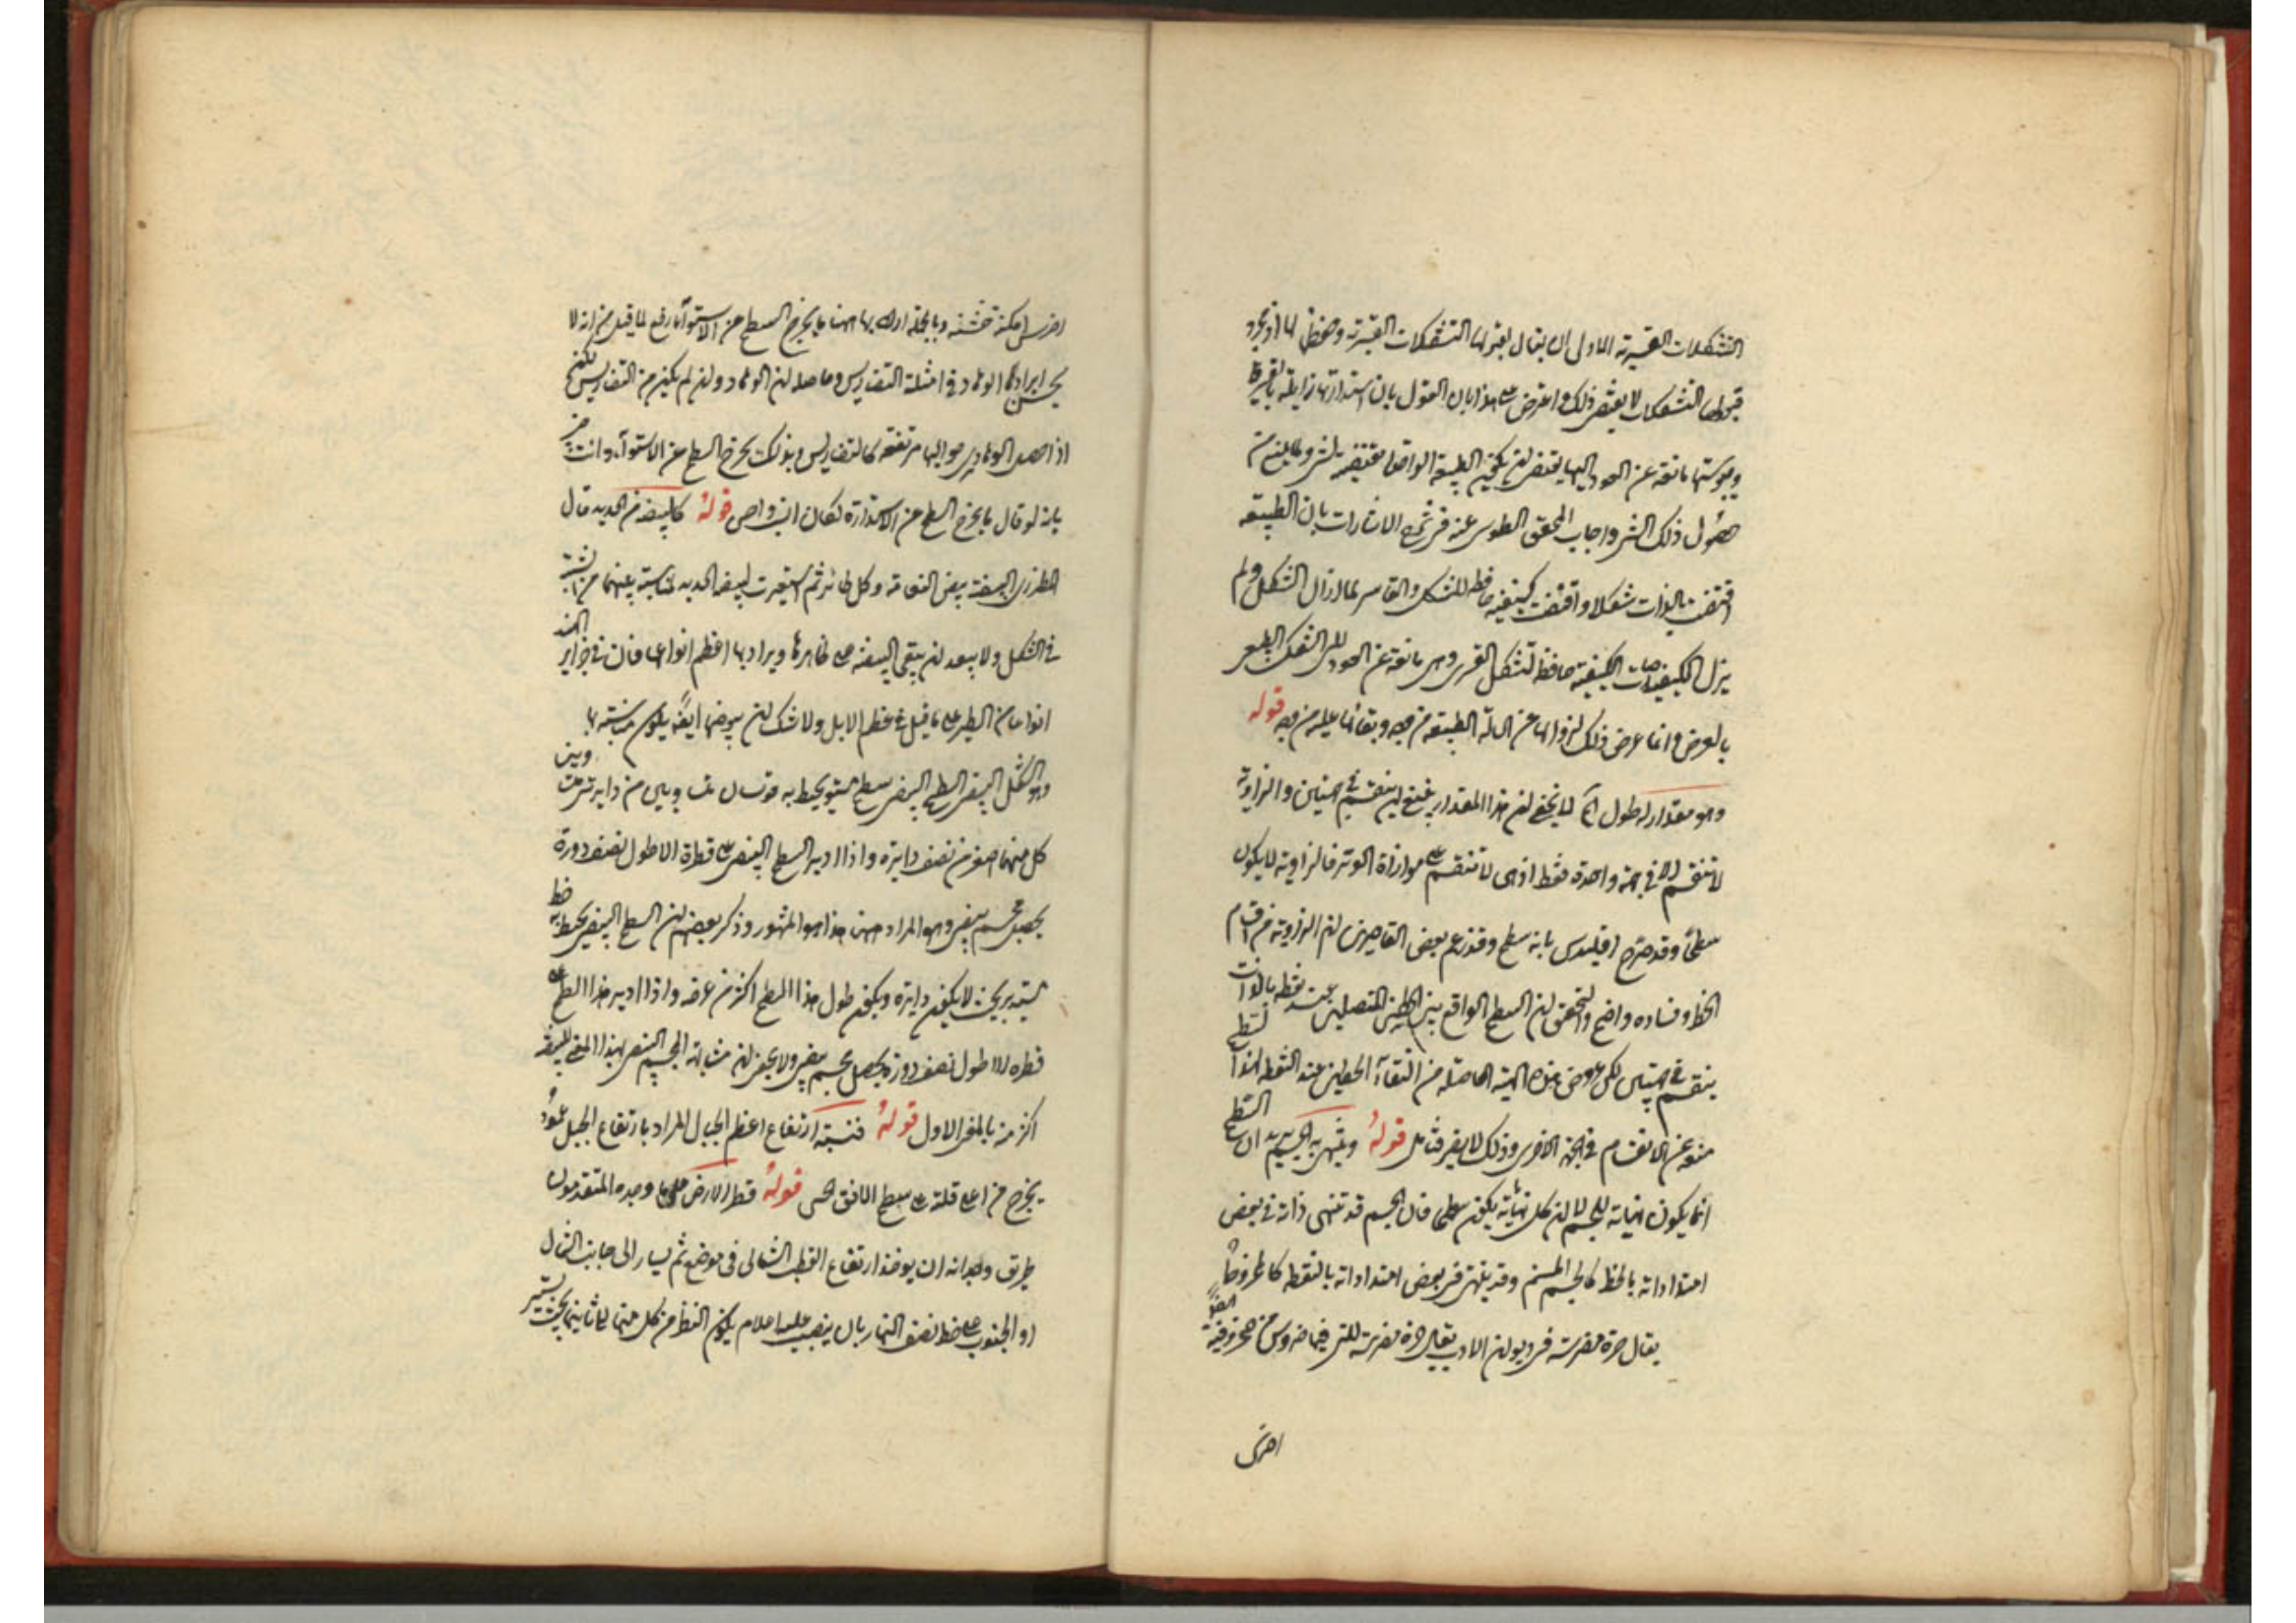 التشكلات القسرية الاول ان يقال لقبولها التشكلات القسرية وحفظها لها اذ مجرد
قبولها التشكلات لا يقتضي ذلك واعترض على هذا بان القول بان استدارتها زايلة بالقسر
ويبوستها مانعة عن العود اليها يقتضي ان يكون الطبيعة الواحدة مقتضية لشئ ولما يمنع من
حصول ذلك الشئ واجاب المحقق الطوسي عنه في شرح الاشارات بان الطبيعة
اقتضت بالذات شكلا واقتضت كيفية حافظة للشكل والقاسر لما ازال الشكل ولم
يزل الكيفية صارت الكيفية حافظة للشكل القسري وهي مانعة عن العود الى الشكل الطبيعي
بالعرض وانما عرض ذلك لزوالها عن الحالة الطبيعية من وجه وبقائها عليه من وجه قوله
وهو مقدار له طول الخ لا يخفى ان هذا المقدار يمتنع ان ينقسم في جهتين والزاوية
لا تنقسم الا في جهة واحدة فقط اذ هي لا تنقسم على موازاة الوتر فالزاوية لا يكون
سطحا وقد صرح اقليدس بانه سطح وقد زعم بعض القاصرين ان الزاوية من اقسام
الخط وفساده واضح والتحقيق ان السطح الواقع بين الخطين المتصلين عند نقطة بالذات
ينقسم في جهتين لكن عروض هذه الهيئة الحاصلة من التقاء الخطين عند النقطة لهذا السطح
منعه عن الانقسام في الجهة الاخرى وذلك لا يضر فتامل قوله وينتهي به الجسم يريد ان السطح
انما يكون نهاية للجسم لا ان كل نهاية يكون سطحا فان الجسم قد تنتهي ذاته في بعض
امتداداته بالخط كالجسم المسنم وقد ينتهي في بعض امتداداته بالنقطة كالمخروط
يقال حرة مضرسة في ديوان الادب يقال حرة مضرسة للتي فيها ضروس من حجر وفيه ايضا
اخرى
اخرى امكنة خشنة وبالجملة اراد بها ههنا ما يخرج السطح عن الاستواء فاندفع لما قيل من انه لا
يحسن ايراد الوهاد في امثلة التضاريس وحاصله ان الوهاد وان لم يكن من التضاريس لكن
اذا حصل الوهاد يرى حواليها مرتفعة كالتضاريس وبذلك يخرج السطح عن الاستواء وانت خبير
بانه لو قال ما يخرج السطح عن الاستدارة لكان انسب واحرى قوله كالبيضة من الحديد قال
المطرزي البيضة بيض النعامة وكل طائر ثم استعيرت لبيضة الحديد لمناسبة بينهما من الشبه
في الشكل ولا يبعد ان يبقى البيضة على ظاهرها ويراد بها اعظم انواعها فان في جزاير الهند
انواعا من الطير على ما قيل في عظم الابل ولا شك ان بيوضها ايضا يكون مناسبة لها
وهو الشكل البيضي السطح البيضي سطح مستو يحيط به قوسان متساويتان من دايرتين
كل منهما اصغر من نصف دايرة واذا ادير السطح البيضي على قطره الاطول نصف دورة
يحصل مجسم بيضي وهو المراد ههنا هذا هو المشهور وذكر بعضهم ان السطح البيضي يحيط به خط
مستدير بحيث لا يكون دايرة ويكون طول هذا السطح اكثر من عرضه واذا ادير هذا السطح على
قطره الاطول نصف دورة يحصل مجسم بيضي ولا يخفى ان مشابهة المجسم البيضي بهذا المعنى للبيضة
اكثر منه بالمعنى الاول قوله فنسبة ارتفاع اعظم الجبال المراد بارتفاع الجبل عمود
يخرج من اعلى قلته على سطح الافق الحسي قوله قطر الارض على ما وجده المتقدمون
طريق وجدانه ان يوخذ ارتفاع القطب الشمالي في موضع ثم يسار الى جانب الشمال
او الجنوب على خط نصف النهار بان ينصب عليه اعلام يكون النظر من كل منها الى ثانيها بحيث يستتر